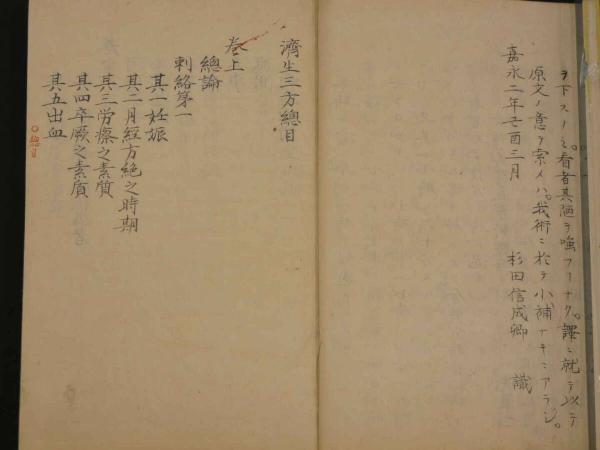 ヲ下スノミ。看者其陋ヲ嗤フ一ナク。譯ニ就テ以テ
原文ノ意ヲ索メハ。我術ニ於テ小補ナキニアラジ。
嘉永二年己酉三月
杉田信成卿 識
濟生三方總目
卷上
總論
刺絡第一
其一妊娠
其二月經方絶之時期
其三労瘵之素質
其四卒厥之素質
其五出血